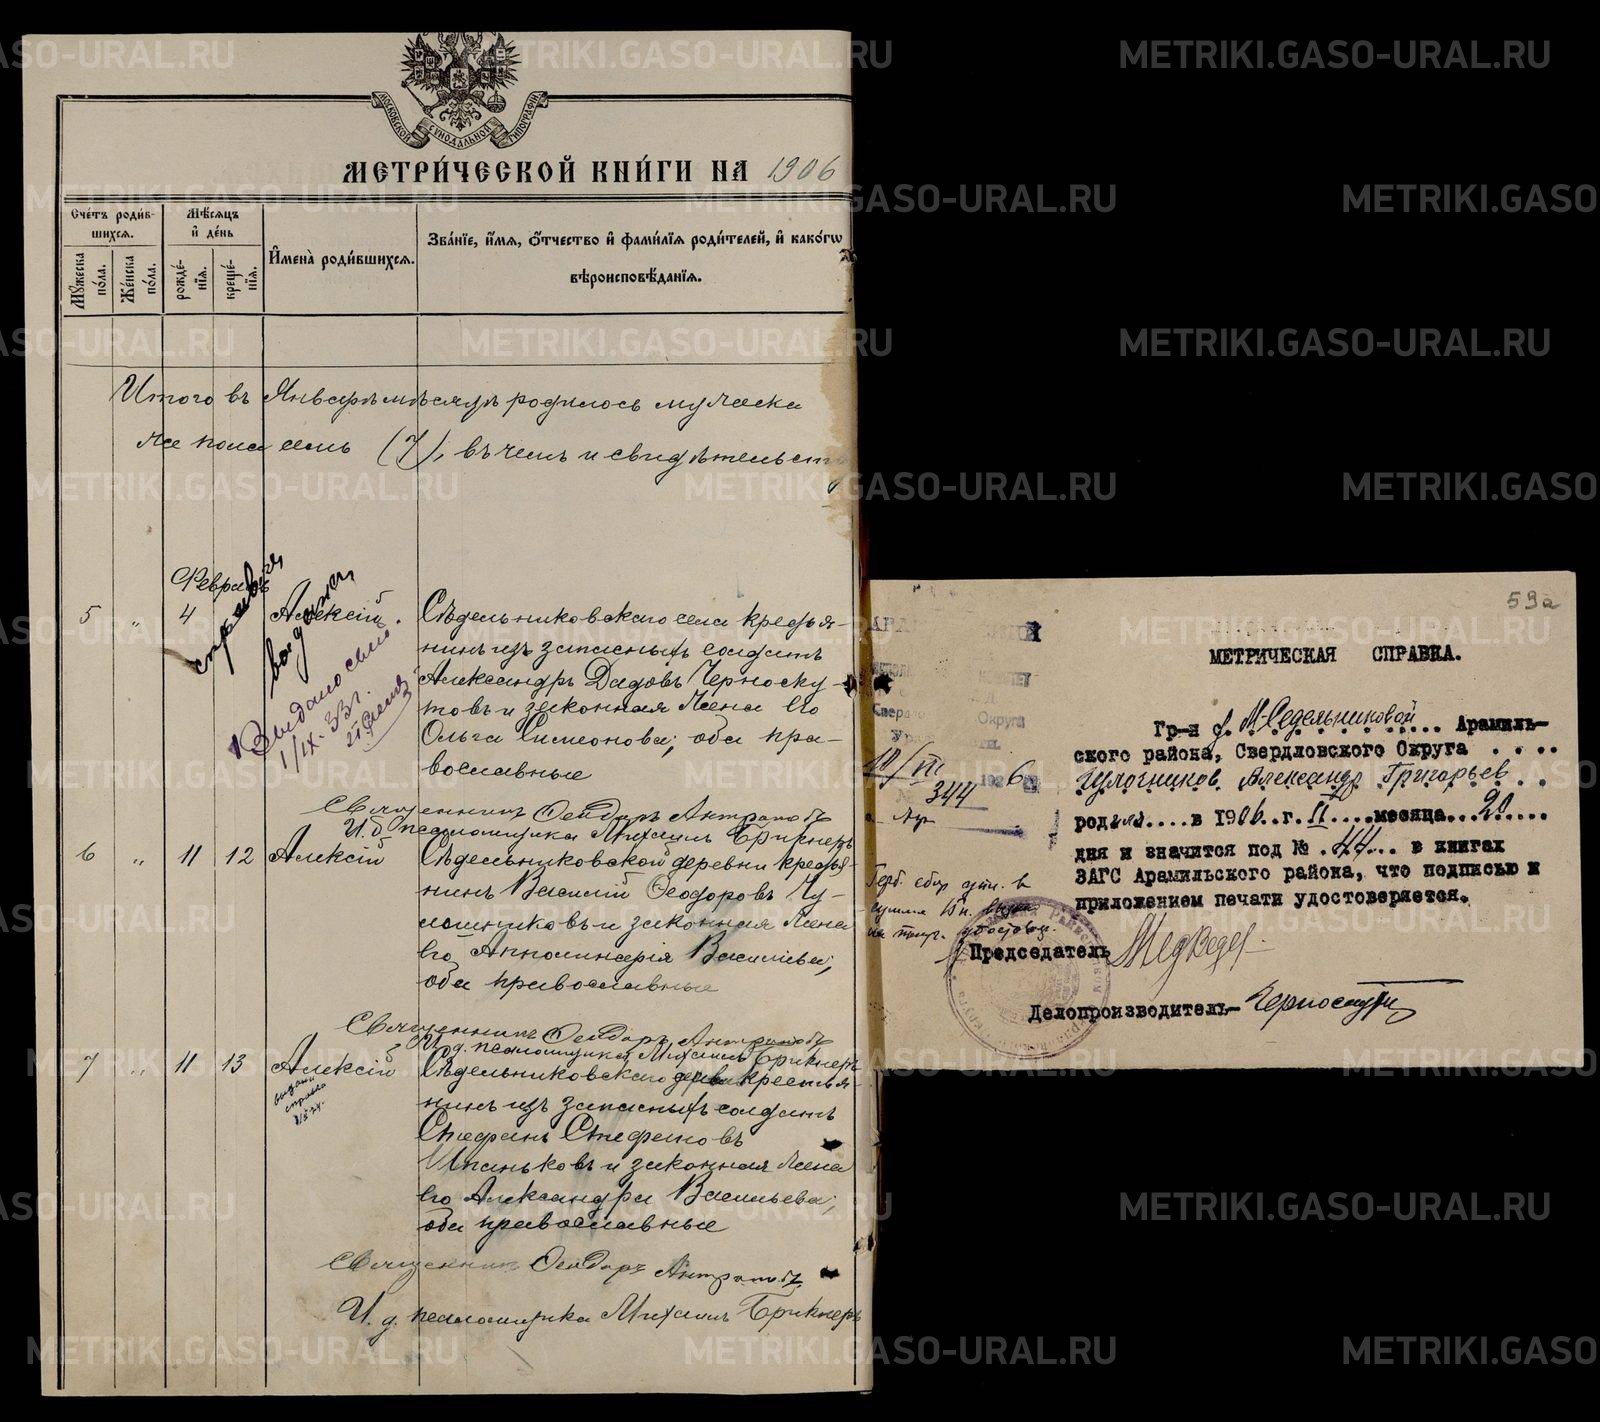 МОСКОВСКОЙ СѴНОДАЛЬНОЙ ТИПОГРАФІИ
МЕТРИ́ЧЕСКОЙ КНИ́ГИ НА 1906
Сче́тъ роди́в-
шихсѧ.
Мꙋ́жеска
по́ла.
Же́нска
по́ла.
Мѣ́сѧцъ
и҆ де́нь
рожде́-
нїѧ.
креще́-
нїѧ.
И҆мена̀ роди́вшихсѧ.
Зва́нїе, и҆́мѧ, ѻ҆́тчество и҆ фами́лїѧ роди́телей, и҆ како́гѡ
вѣроисповѣ́данїѧ.
Итого въ Январѣ мѣсяцѣ родилось мужеска
го пола семь (7), въ чемъ и свидѣтельств
Февраль
5 „ 4 Алексій
справка
выдана
Выдано
1/IX-33 г.
Сѣдельниковскаго села кресья-
нинъ изъ запасныхъ солдатъ
Александръ Черноску-
товъ и законная жена его
Ольга Симеонова; оба пра-
вославные
Священникъ Ѳеодоръ Антроповъ
И. д. псаломщика Михаилъ Брикнеръ
6 „ 11 12 Алексій
Сѣдельниковской деревни кресья-
нинъ Василій Ѳеодоровъ Чу-
лошниковъ и законная жена
его Апполинарія Васильева;
оба православные
Священникъ Ѳеодоръ Антроповъ
И. д. псаломщика Михаилъ Брикнеръ
7 „ 11 13 Алексій
выдана
справка
Сѣдельниковскаго крестья-
нинъ изъ запасныхъ солдатъ
Стефанъ Стефановъ
Шпаньковъ и законная жена
его Александра Васильева;
оба православные
Священникъ Ѳеодоръ Антроповъ
И. д. псаломщика Михаилъ Брикнеръ
59а
МЕТРИЧЕСКАЯ СПРАВКА.
Гр-н д. М-Седельниковой Арамиль-
ского района, Свердловского Округа . . . .
Чулочников Александр Григорьев
род.... в 1906..г. II....месяца...20.....
дня и значится под № .44... в книгах
ЗАГС Арамильского района, что подписью и
приложением печати удостоверяется.
Председатель Медведев
Делопроизводитель- Черноскутов
Округа
10/VII 1926
№ 344
Герб. сбор
METRIKI.GASO-URAL.RU